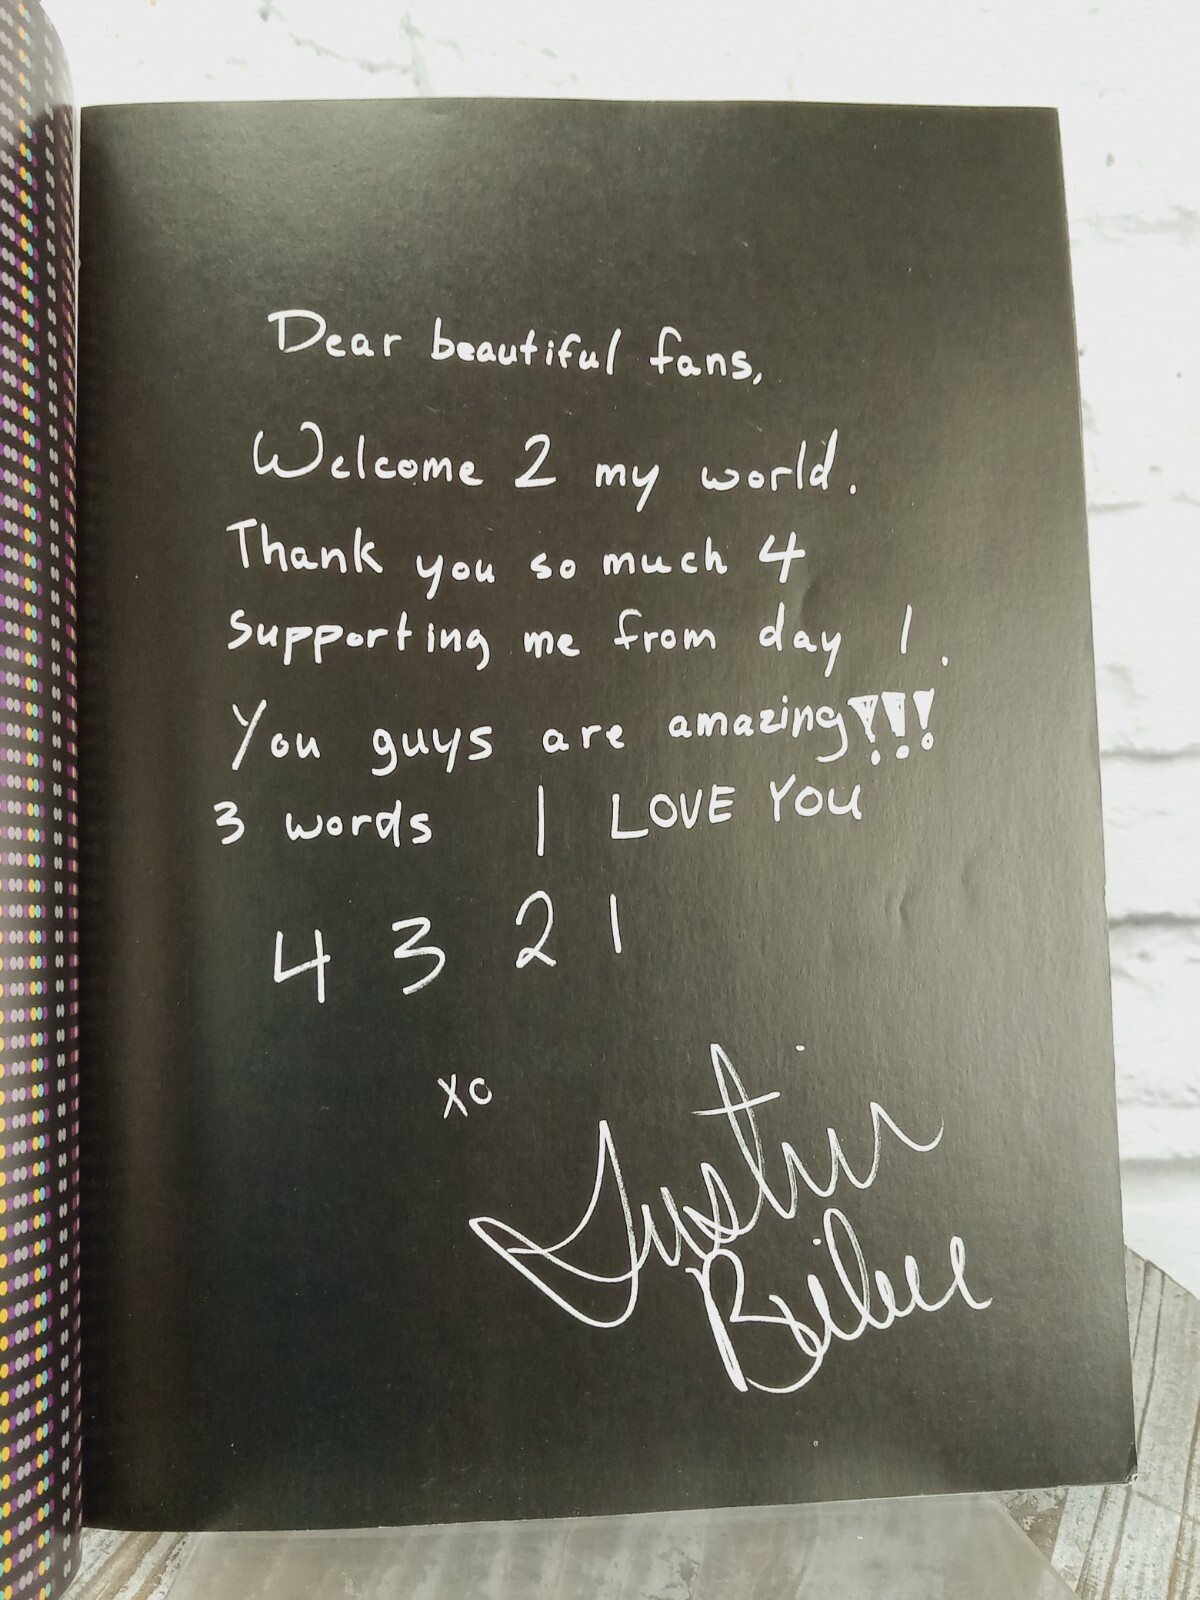 Dear beautiful fans,
Welcome 2 my world.
Thank you so much 4
supporting me from day 1.
You guys are amazing!!!
3 words I LOVE YOU
4 3 2 1
XO
Justin
Bieber